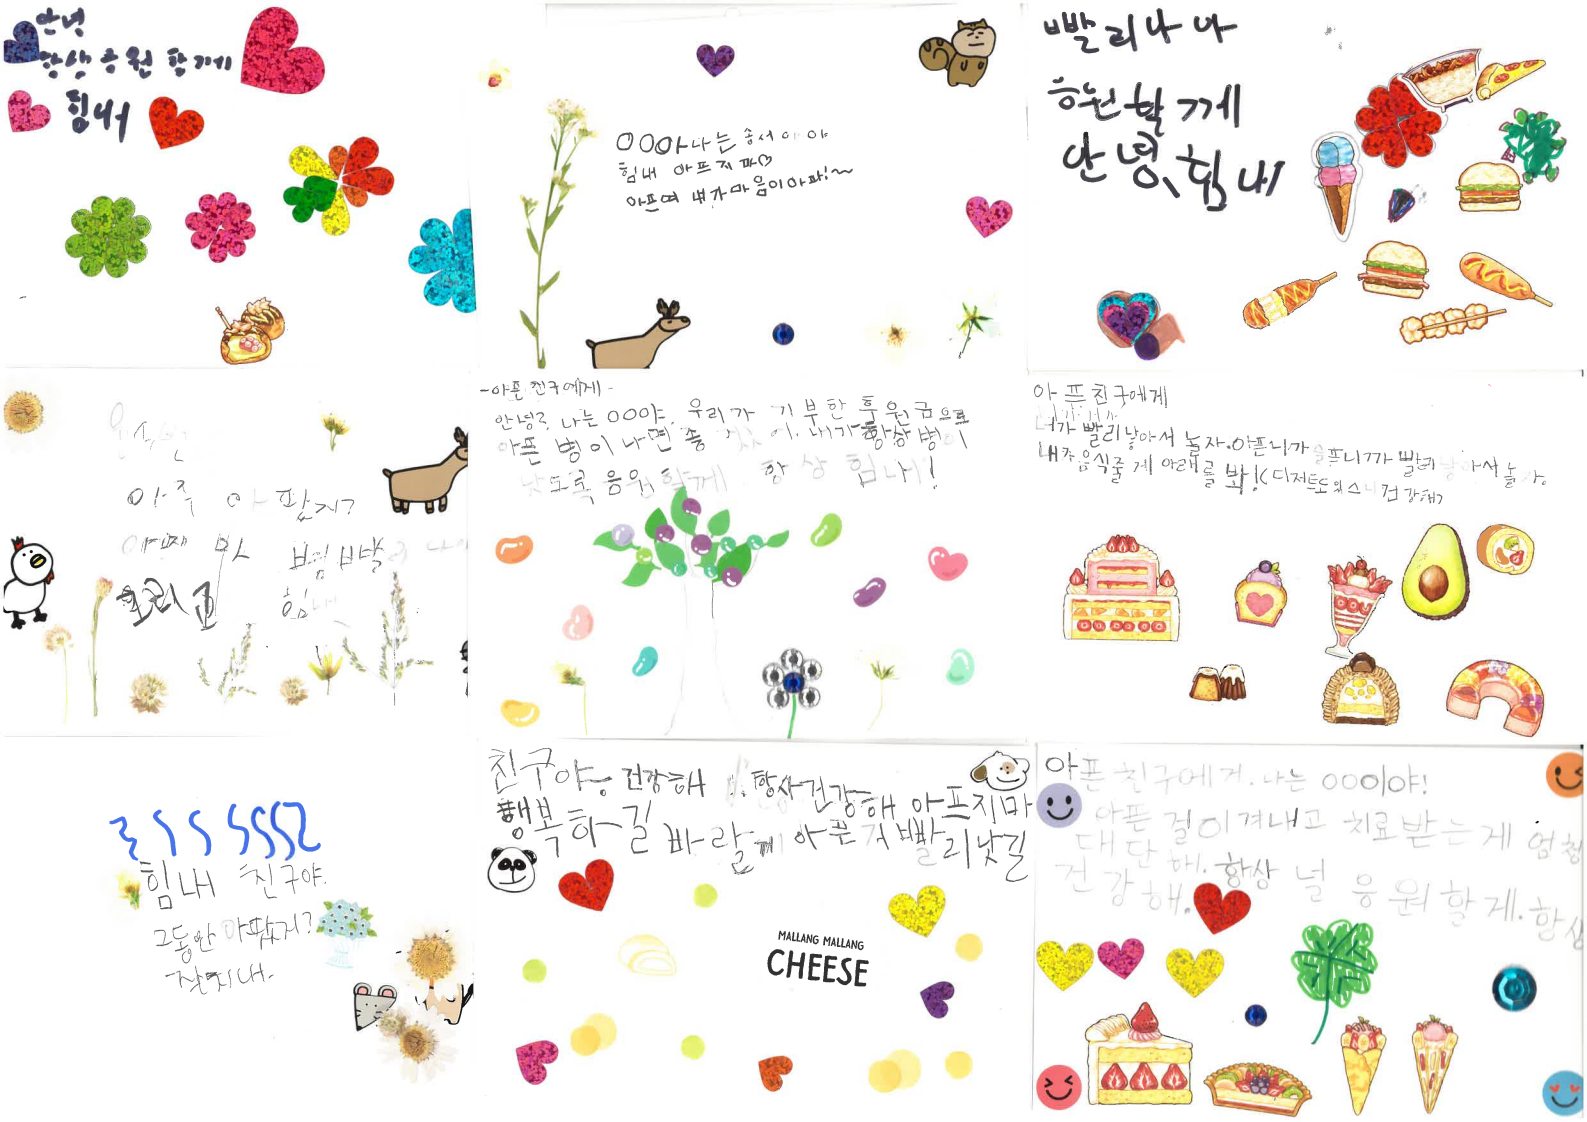 안녕
항상 응원 할께
힘내
OOO아 나는 송서아야
힘내 아프지 마♡
아프며 내가 마음이 아파!~
빨리 나아
응원할께
안녕, 힘내
아주 아팠지?
빨리
힘내
-아픈 친구에게-
안녕? 나는 OOO야. 우리가 기부한 후원금으로
아픈 병이 나면 좋겠어. 내가 항상 병이
낫도록 응원할께 항상 힘내!
아프친구에게
너가 빨리 낳아서 놀자. 아프니까 슬프니까 빨리 낳아서 놀자.
내가 음식줄게 아래를 봐!(디저트도 있스니 건강해?
힘내 친구야.
그동안 아팠지?
-잔지내-
친구야~ 건강해 항상건강해 아프지마
행복하길 바랄께 아픈거 빨리 낫길
MALLANG MALLANG
CHEESE
아픈 친구에게. 나는 OOO이야!
아픈 걸 이겨내고 치료받는 게 엄청
대단해. 항상 널 응원할게. 항상
건강해.